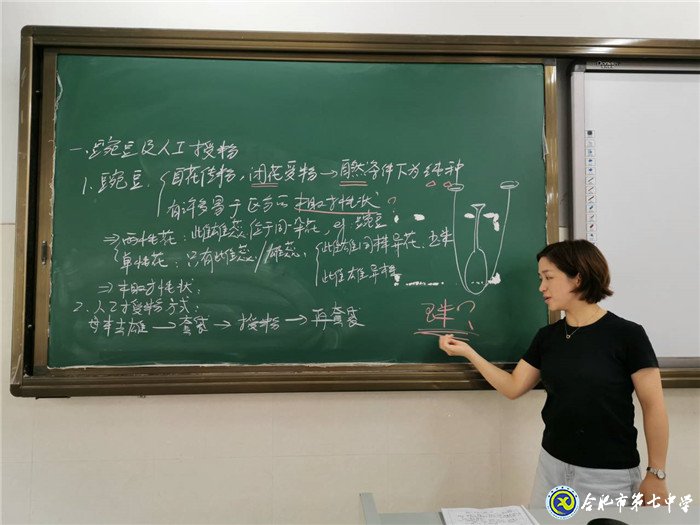 一.豌豆及人工授粉
1.豌豆. 自花传粉,闭花受粉→自然条件下为纯种
有许多易于区分的相对性状
⇒两性花:雌雄蕊位于同一朵花, eg.豌豆
单性花:只有雌蕊/雄蕊. 雌雄同株异花. 玉米
雌雄异株
⇒相对性状:
2.人工授粉方式:
母本去雄→套袋→授粉→再套袋
?
合肥市第七中学